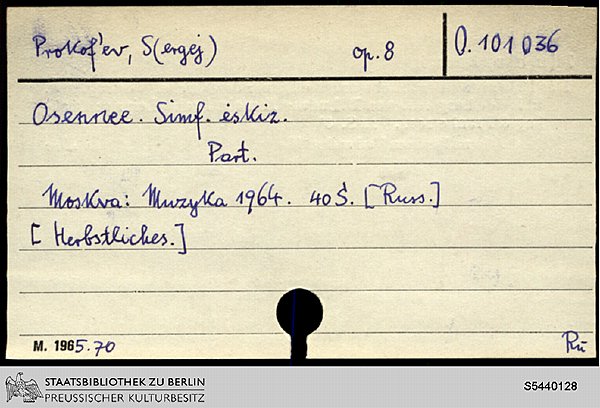 Prokof'ev, S(ergej) op. 8 O. 101 036
Osennee. Simf. ėskiz.
Part.
Moskva: Muzyka 1964. 40 S. [Russ.]
[Herbstliches.]
M. 1965.70
Rü
STAATSBIBLIOTHEK ZU BERLIN
PREUSSISCHER KULTURBESITZ
S5440128